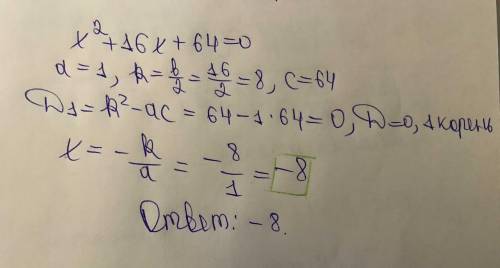 x²+16x+64=0
a=1, k=b/2=16/2=8, c=64
D1=k²-ac=64-1·64=0, D=0, 1 корень
x=-k/a=-8/1=-8
Ответ: -8.